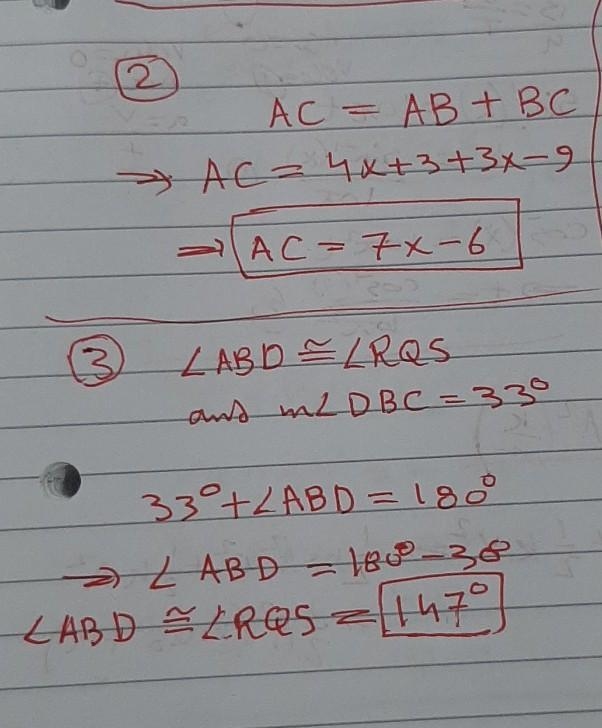 ②
AC = AB + BC
⇒ AC = 4x+3+3x-9
⇒ AC = 7x-6
③ ∠ABD ≅ ∠RQS
and m∠DBC = 33°
33°+∠ABD = 180°
⇒ ∠ABD = 180°-38
∠ABD ≅ ∠RQS = 147°